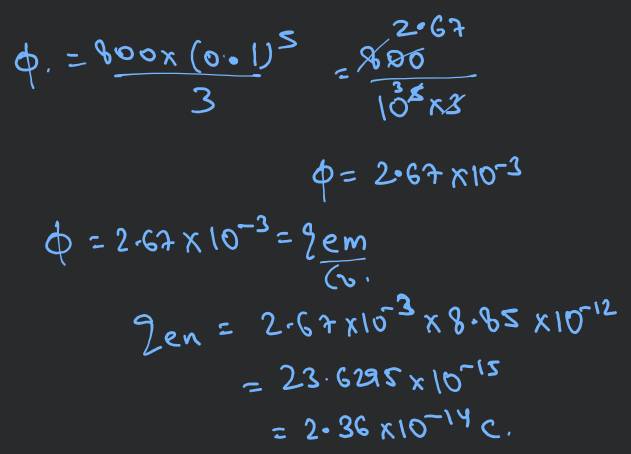 ϕ. = 800 x (0.1)^5 / 3 = 800 2.67 / 10^5 3 x 3
ϕ = 2.67 x 10^-3
ϕ = 2.67 x 10^-3 = qem / ϵ0.
qen = 2.67 x 10^-3 x 8.85 x 10^-12
= 23.6295 x 10^-15
= 2.36 x 10^-14 C.